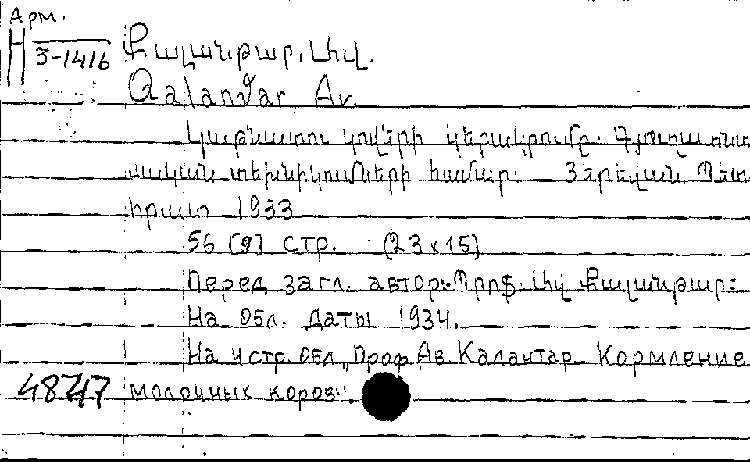 Арм.
Н
3-1416
Քալանթար, Ավ.
Qalantar Av.
Կաթնատու կովերի կերակրումը. Գյուղատնտե
սական տեխնիկումների համար. Յերեվան Պետ
հրատ 1933
56 [9] стр. (23х15)
Перед загл. автор: Պրոֆ. Ավ Քալանթար:
На обл. даты 1934.
На 4 стр. обл. „Проф. Ав. Калантар Кормление
48747 молочных коров".